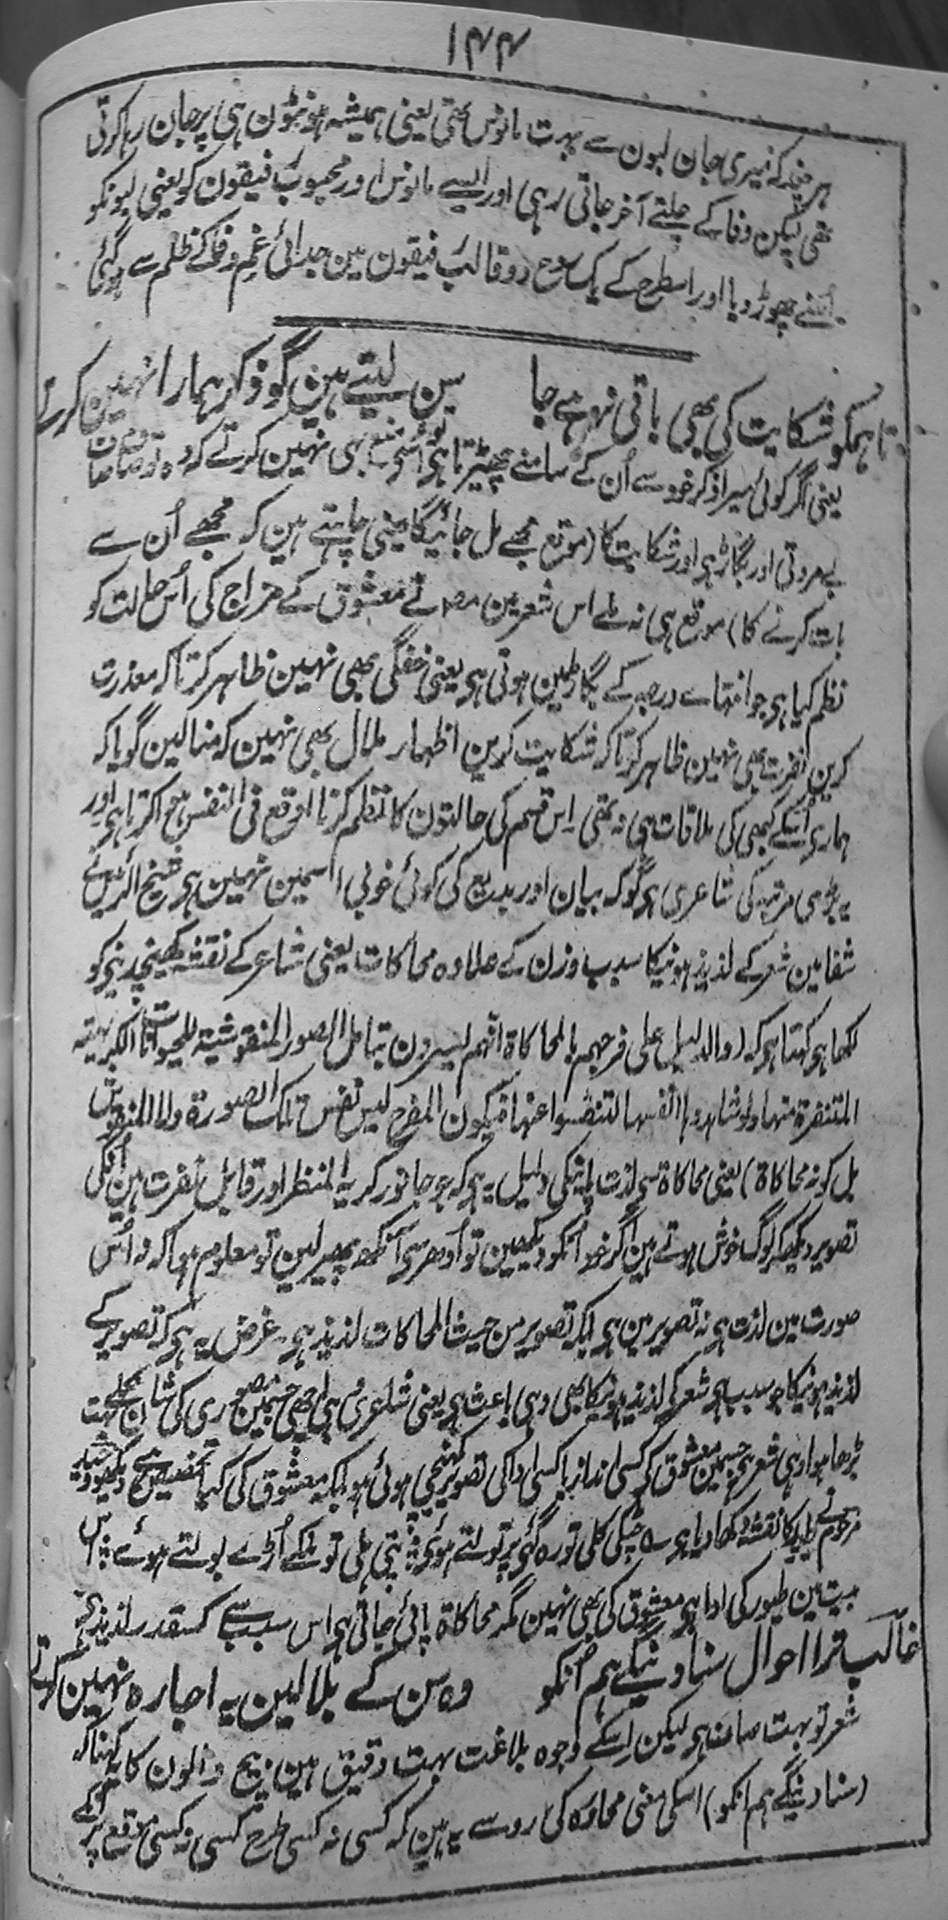 ۱۴۴
ہر چند کہ میری جان لبون سے بہت مانوس تھی یعنی ہمیشہ ہونٹون ہی پر جان رہا کرتی
تھی لیکن وفا کے چلتے آخر جاتی رہی اور ایسے مانوس اور محبوب رفیقون کو یعنی لبونکو
اُسنے چھوڑ دیا اور اسطرح کے یک روح (دو قالب رفیقون مین جدائی غم وفا کے ظلم سے ہو گئی
تا ہمکو شکایت کی بھی باقی نرہے جا سن لیتے ہین گو ذکر ہمارا نہین کرتے
یعنی اگر کوئی میرا ذکر خود سے اُن کے سامنے چھیڑتا ہی تو اُسے منع بھی نہین کرتے کہ وہ تو صاف صاف
بے مروتی اور بگاڑ ہی اور شکایت کا (موقع مجھے مل جائیگا یعنی چاہتے ہین کہ مجھے اُن سے
بات کرنے کا) موقع ہی نہ ملے اس شعر مین مصنف نے معشوق کے مزاج کی اُس حالت کو
نظم کیا ہی جو انتہاے درجہ کے بگاڑ مین ہوتی ہی یعنی خفگی بھی نہین ظاہر کرتا کہ معذرت
کرین نفرت بھی نہین ظاہر کرتا کہ شکایت کرین اظہار ملال بھی نہین کہ منالین گویا کہ
ہماری اُسکے کبھی کی ملاقات ہی نہ تھی اِس قسم کی حالتون کا نظم کرنا اوقع فی النفس ہوا کرتا ہی اور
یہ بڑی مرتبہ کی شاعری ہی گو کہ بیان اور بدیع کی کوئی خوبی اسمین نہین ہی شیخ الرئیس نے
شفا مین شعر کے لذیذ ہونیکا سبب وزن کے علاوہ محاکات یعنی شاعر کے نقشہ کھینچدینے کو
لکھا ہی کہتا ہی کہ (والدلیل علی فرحہم بالمحاکاۃ انہم یسرون بتامل الصور المنقوشۃ للحیوانات الکریہۃ
المتنفرۃ منہا ولو شاہدوہا انفسہا لتنفسوا عنہا فیکون المفرح لیس نفس تلک الصورۃ ولا المنقوش
بل کونہ محاکاۃ) یعنی محاکاۃ سے لذت پانیکی دلیل یہ ہی کہ جو جانور کریہ المنظر اور قابل نفرت ہین اُنکی
تصویر دیکھکر لوگ خوش ہوتے ہین اگر خود اُنکو دیکھین تو اُدھر سی آنکھ پھیر لین تو معلوم ہوا کہ نہ اُس
صورت مین لذت ہی نہ تصویر مین ہی بلکہ تصویر من حیث المحاکات لذیذ ہی۔ غرض یہ ہی کہ تصویر کے
لذیذ ہونیکا جو سبب ہی شعر کی لذیذ ہونیکا بھی وہی باعث ہی یعنی شاعری وہی اچھی جسمین مصوری کی شان نکلے بہت
بڑھا ہوا وہی شعر ہی جسمین معشوق کی کسی انداز یا کسی ادا کی تصویر کھنچی ہوئی ہو بلکہ معشوق کی کیا تخصیص ہے دیکھو وحید
مرحوم نے بلبل کا نقشہ دکھا دیا ہی ے چٹکی کلی تو رہ گئی پر تولتے ہوئے ؛ پتی ہلی تو چمکے اُڑے بولتے ہوئے ؛ اس
بیت مین طیور کی ادا ہی معشوق کی بھی نہین مگر محاکاۃ پائی جاتی ہی اس سبب سے کسقدر لذیذ ہی
غالب ترا احوال سنا دینگے ہم اُنکو وہ سن کے بلالین یہ اجارہ نہین کرتے
شعر تو بہت صاف ہی لیکن اِسکے وجوہ بلاغت بہت دقیق ہین بیچ والون کا یہ کہنا کہ
(سنا دینگے ہم اُنکو) اسکی معنی محاورہ کی رو سے یہ ہین کہ کسی نہ کسی طرح کسی نہ کسی موقع پر